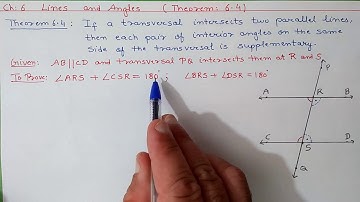 Ch: 6 Lines and Angles (Theorem: 6.4)
Theorem 6.4: If a transversal intersects two parallel lines, then each pair of interior angles on the same side of the transversal is supplementary.
Given: AB||CD and transversal PQ intersects them at R and S.
To Prove: ∠ARS + ∠CSR = 180°; ∠BRS + ∠DSR = 180°
P
A R B
C S D
Q